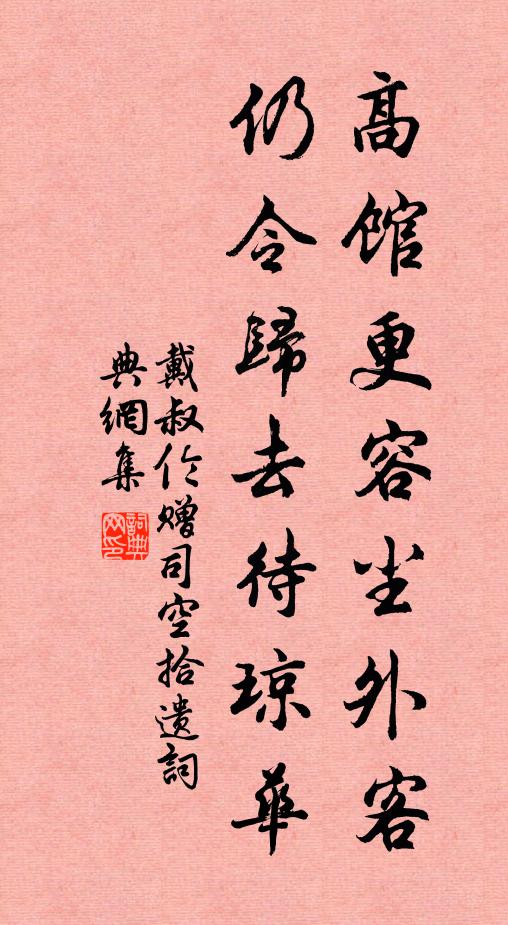 高館更容尘外客
仍令歸去待琼華
戴叔伦贈司空拾遺詞
典網集
詞典
网印